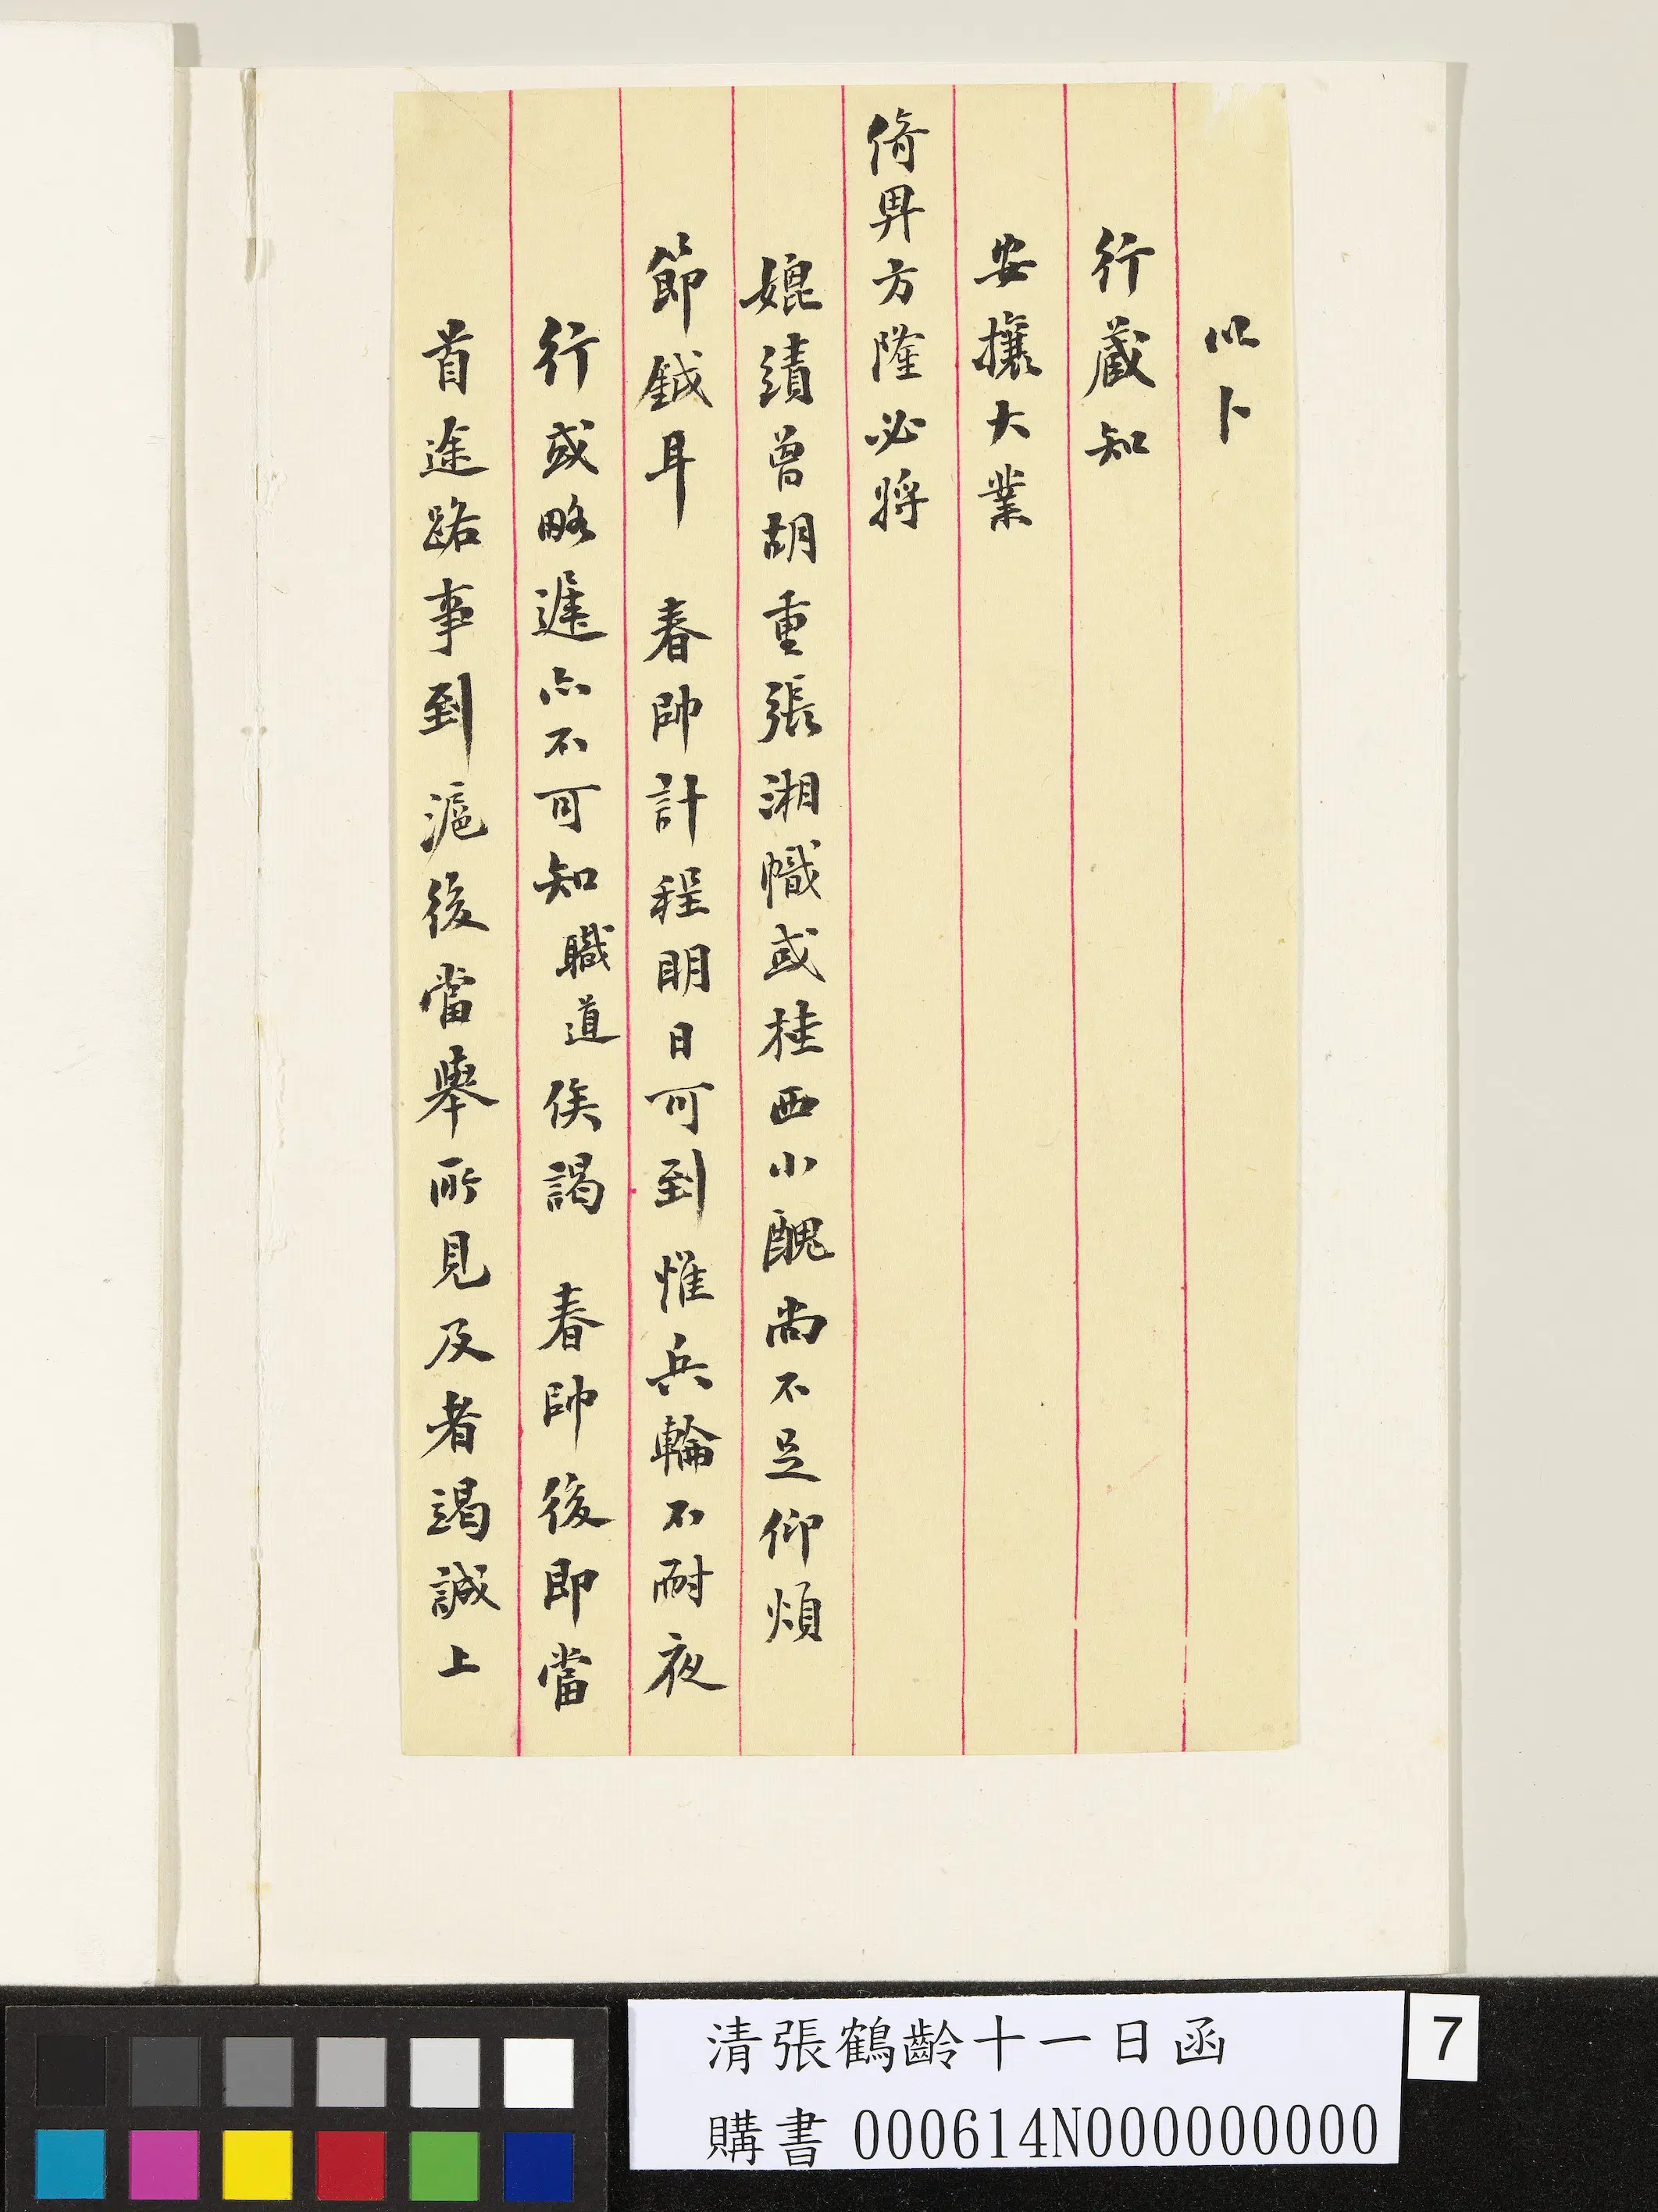 以卜
行藏知
安攘大業
倚畀方隆必將
媲績曾胡重張湘幟或桂西小醜尚不足仰煩
節鉞耳　春帥計程明日可到惟兵輪不耐夜
行或略遲亦不可知職道俟謁　春帥後即當
首途路事到滬後當舉所見及者竭誠上
清張鶴齡十一日函
購書 000614N000000000
7